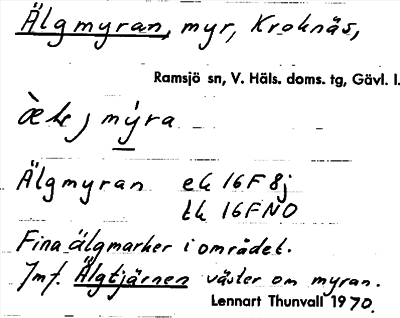 Älgmyran, myr, Kroknäs,
Ramsjö sn, V. Häls. doms. tg, Gävl. l.
mýra
Älgmyran ek 16F 8j
tk 16F NO
Fina älgmarker i området.
Jmf. Älgtjärnen väster om myran.
Lennart Thunvall 1970.